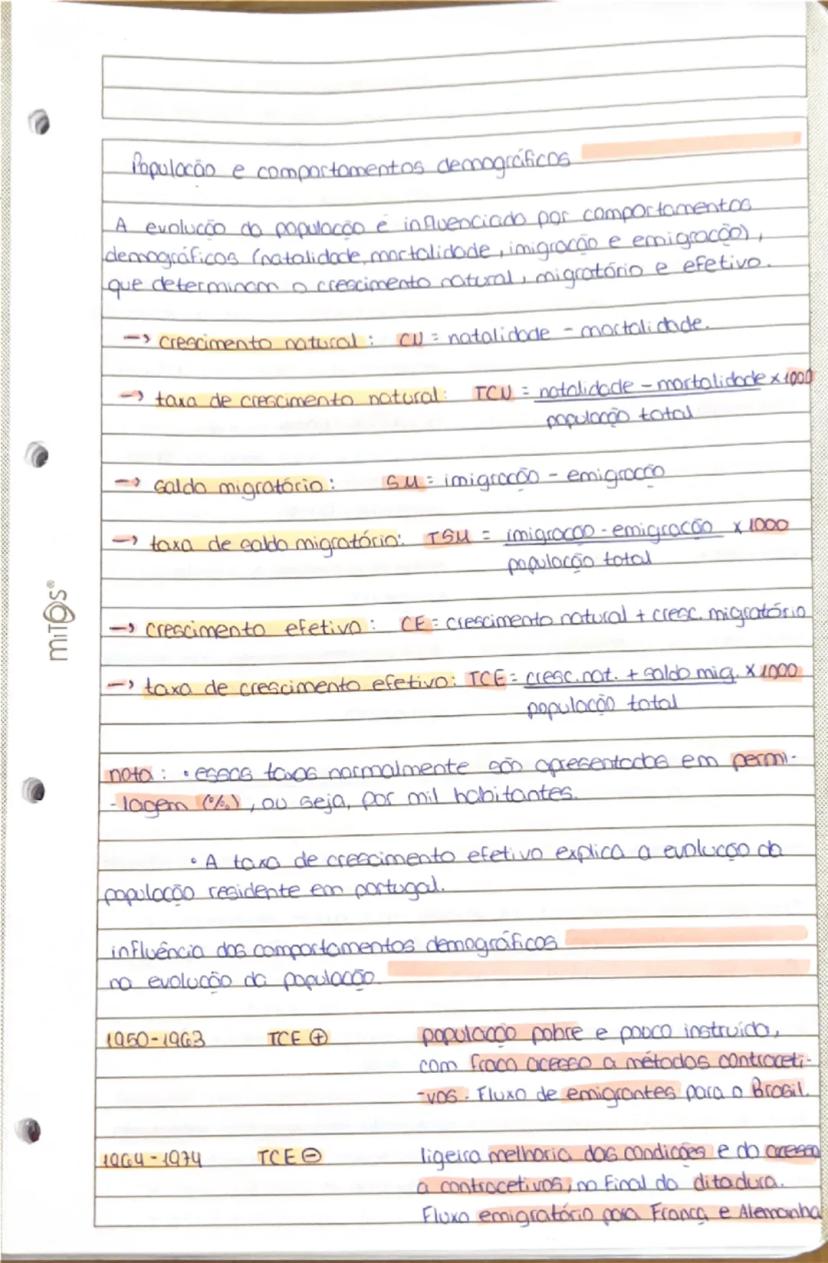 População e comportamentos demográficos
A evolução da população é influenciada por comportamentos
demográficos (natalidade, mortalidade, imigração e emigração),
que determinam o crescimento natural, migratório e efetivo.
→ crescimento natural: CN = natalidade - mortalidade.
→ taxa de crescimento natural: TCN = natalidade - mortalidade x 1000
população total
→ saldo migratório: SM = imigração - emigração
→ taxa de saldo migratório: TSM = imigração - emigração x 1000
população total
→ crescimento efetivo: CE = crescimento natural + cresc. migratório
→ taxa de crescimento efetivo: TCE = cresc. nat. + saldo mig. x 1000
população total
nota: • essas taxas normalmente são apresentadas em permi-
-lagem (‰), ou seja, por mil habitantes.
• A taxa de crescimento efetivo explica a evolução da
população residente em portugal.
influência dos comportamentos demográficos
na evolução da população.
1950-1963 TCE ⊕ população pobre e pouco instruída,
com fraco acesso a métodos contraceti-
-vos. Fluxo de emigrantes para o Brasil.
1964-1974 TCE ⊖ ligeira melhoria das condições e do acesso
a contracetivos, no final da ditadura.
Fluxo emigratório para França e Alemanha
miTOS®